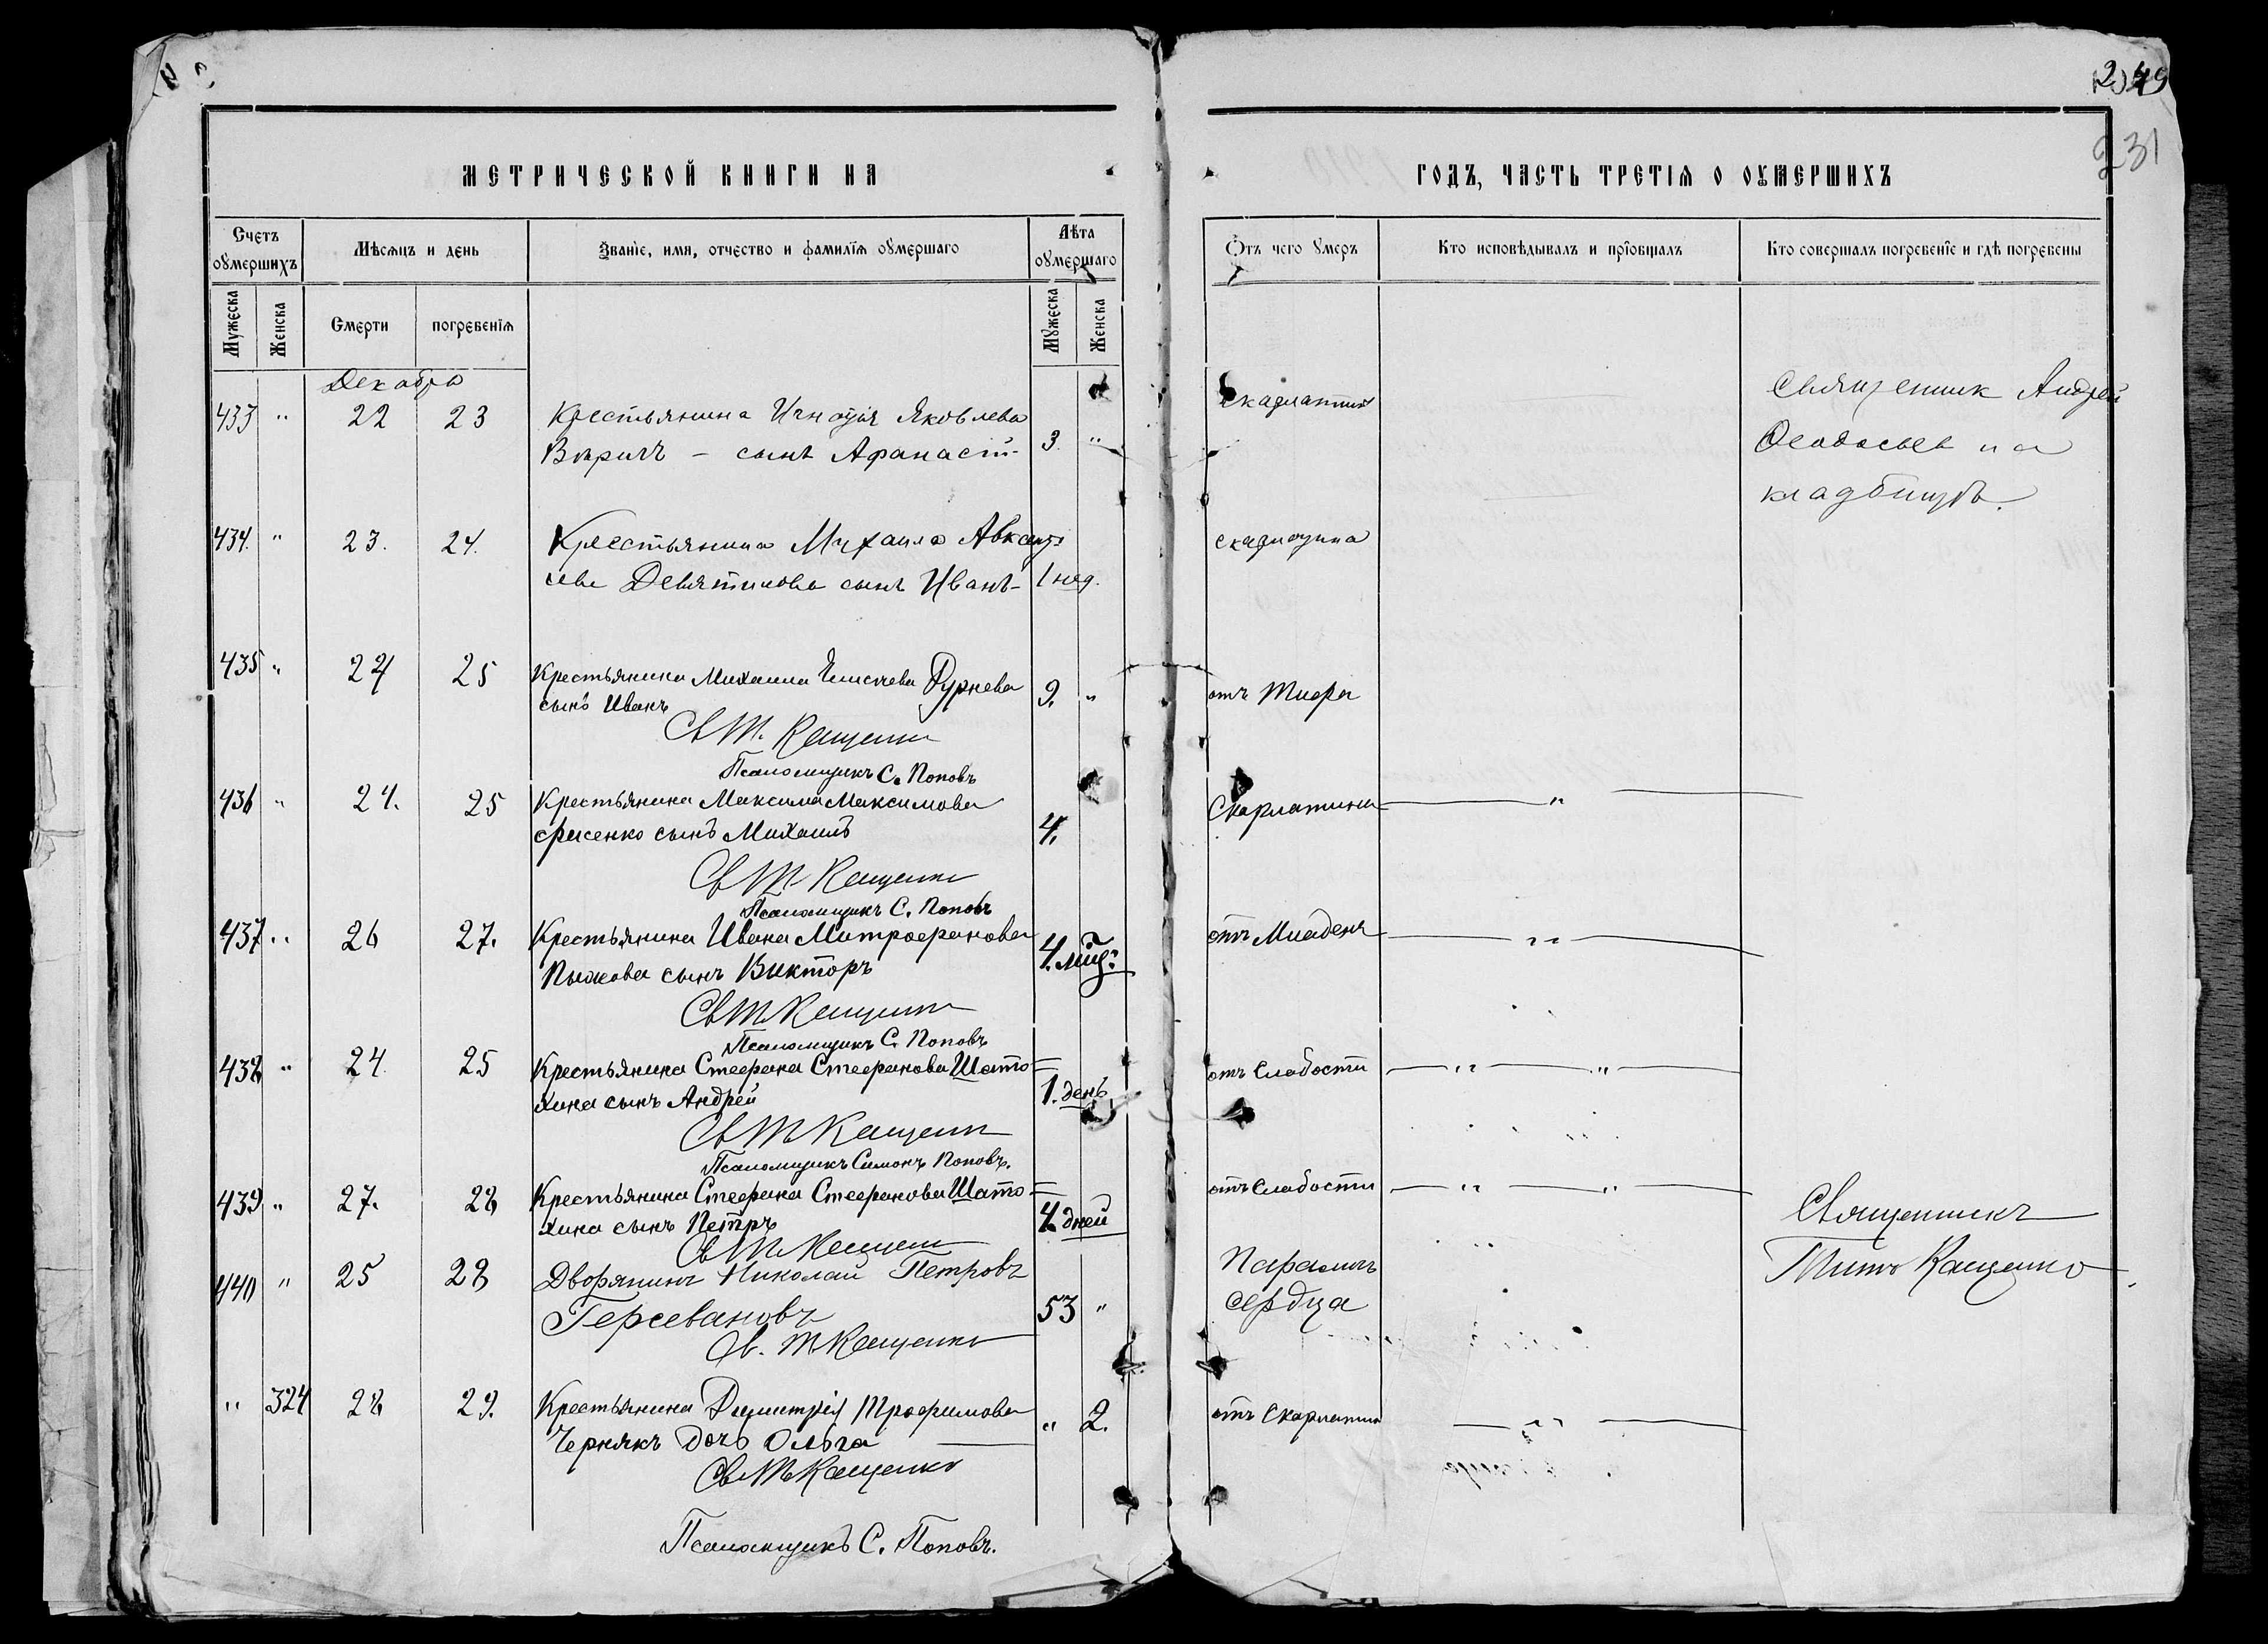 249
231
МЕТРИЧЕСКОЙ КНИГИ НА
ГОДЪ, ЧАСТЬ ТРЕТІЯ О ОУМЕРШИХЪ
Счетъ оумершихъ
Мѣсяцъ и день
Званіе, имя, отчество и фамилія оумершаго
Лѣта оумершаго
Отъ чего умеръ
Кто исповѣдывалъ и пріобщалъ
Кто совершалъ погребеніе и гдѣ погребены
Мужеска
Женска
Смерти
погребенія
Мужеска
Женска
Декабрь
433 " 22 23 Крестьянина Игнатія Яковлева 3 " Скарлатина Священник Андрей
сынъ Афанасій Феодосьев на
кладбищѣ.
434. " 23. 24. Крестьянина Михаила Авксенть 1 нед. скарлатина
ева Девятикова сынъ Иванъ
435 " 24 25 Крестьянина Михаила Елисеева Дурнева 9. " отъ Тифа
сынъ Иванъ
Св Т. Кащенко
Псаломщикъ С. Поповъ
436 " 24. 25 Крестьянина Максима Максимова 4. Скарлатина "
Фисенко сынъ Михаилъ
Св Т Кащенко
Псаломщикъ С. Поповъ
437 " 26 27. Крестьянина Ивана Митрофанова 4. мѣц. отъ Младенч "
Пыжова сынъ Викторъ
Св Т Кащенко
Псаломщикъ С. Поповъ
438 " 24 25 Крестьянина Стефана Стефанова Шато= 1. день отъ Слабости " "
хина сынъ Андрей
Св Т Кащенко
Псаломщикъ Симонъ Поповъ.
439 " 27. 28 Крестьянина Стефана Стефанова Шато= 4 дней отъ Слабости " " Священникъ
хина сынъ Петръ
Св Т Кащенко
440 " 25 28 Дворянинъ Николай Петровъ 53 " Параличъ Титъ Кащенко
Герсевановъ сердца
Св. Т Кащенко
" 324 28 29. Крестьянина Димитрія Трофимова " 2. отъ Скарлатин "
Чернякъ дочь Ольга
Св Т Кащенко
Псаломщикъ С. Поповъ.